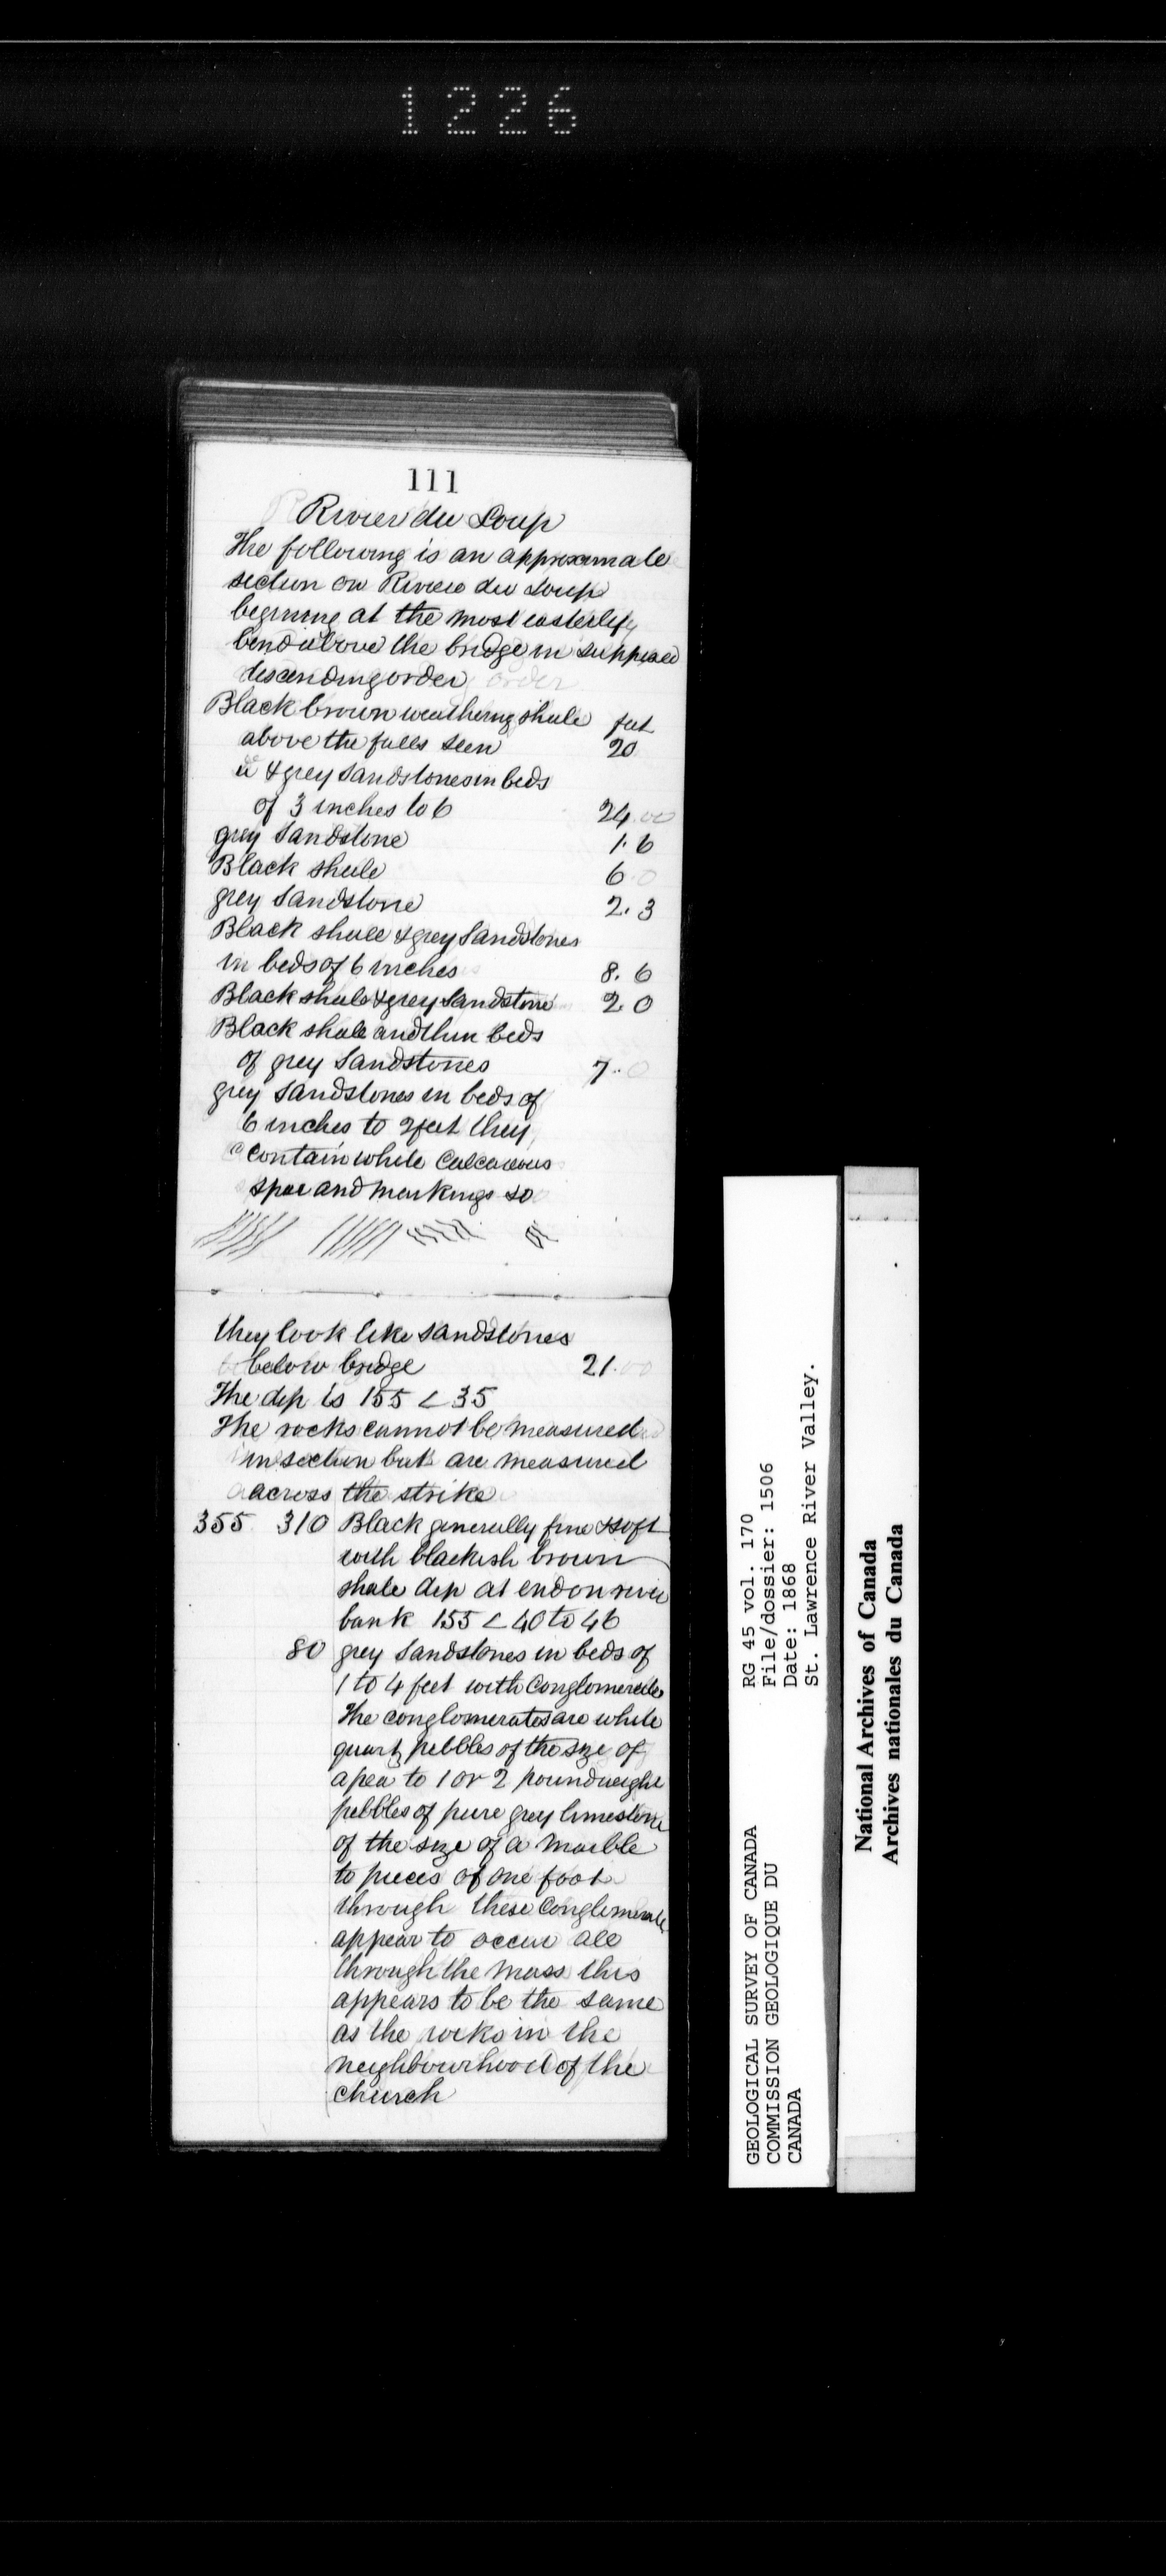 1226
111
Rivier du Loup
The following is an approximate
section on Riviere du Loup
begining at the most easterly
bend above the bridge in supposed
descending order
Black brown weathering shale feet
above the falls seen 20
" & grey Sandstones in beds
of 3 inches to 6 24.00
grey Sandstone 1.6
Black shale 6.0
grey Sandstone 2.3
Black shale & grey Sandstones
in beds of 6 inches 8.6
Black shale & grey Sandstone 2.0
Black shale and thin beds
of grey Sandstones 7.0
grey Sandstones in beds of
6 inches to 2 feet they
contain white Calcareous
spar and markings so
they look like Sandstones
below bridge 21.00
The dip is 155 < 35
The rocks cannot be measured
in section but are measured
across the strike
355 310 Black generally fine & soft
with blackish brown
shale dip at end on river
bank 155 < 40 to 46
80 grey Sandstones in beds of
1 to 4 feet with Conglomerates
The conglomerates are white
quartz pebbles of the size of
a pea to 1 or 2 pound weight
pebbles of pure grey limestone
of the size of a marble
to pieces of one foot
through these Conglomerate
appear to occur all
through the mass this
appears to be the same
as the rocks in the
neighbourhood of the
church
GEOLOGICAL SURVEY OF CANADA
COMMISSION GEOLOGIQUE DU
CANADA
RG 45 vol. 170
File/dossier: 1506
Date: 1868
St. Lawrence River Valley.
National Archives of Canada
Archives nationales du Canada